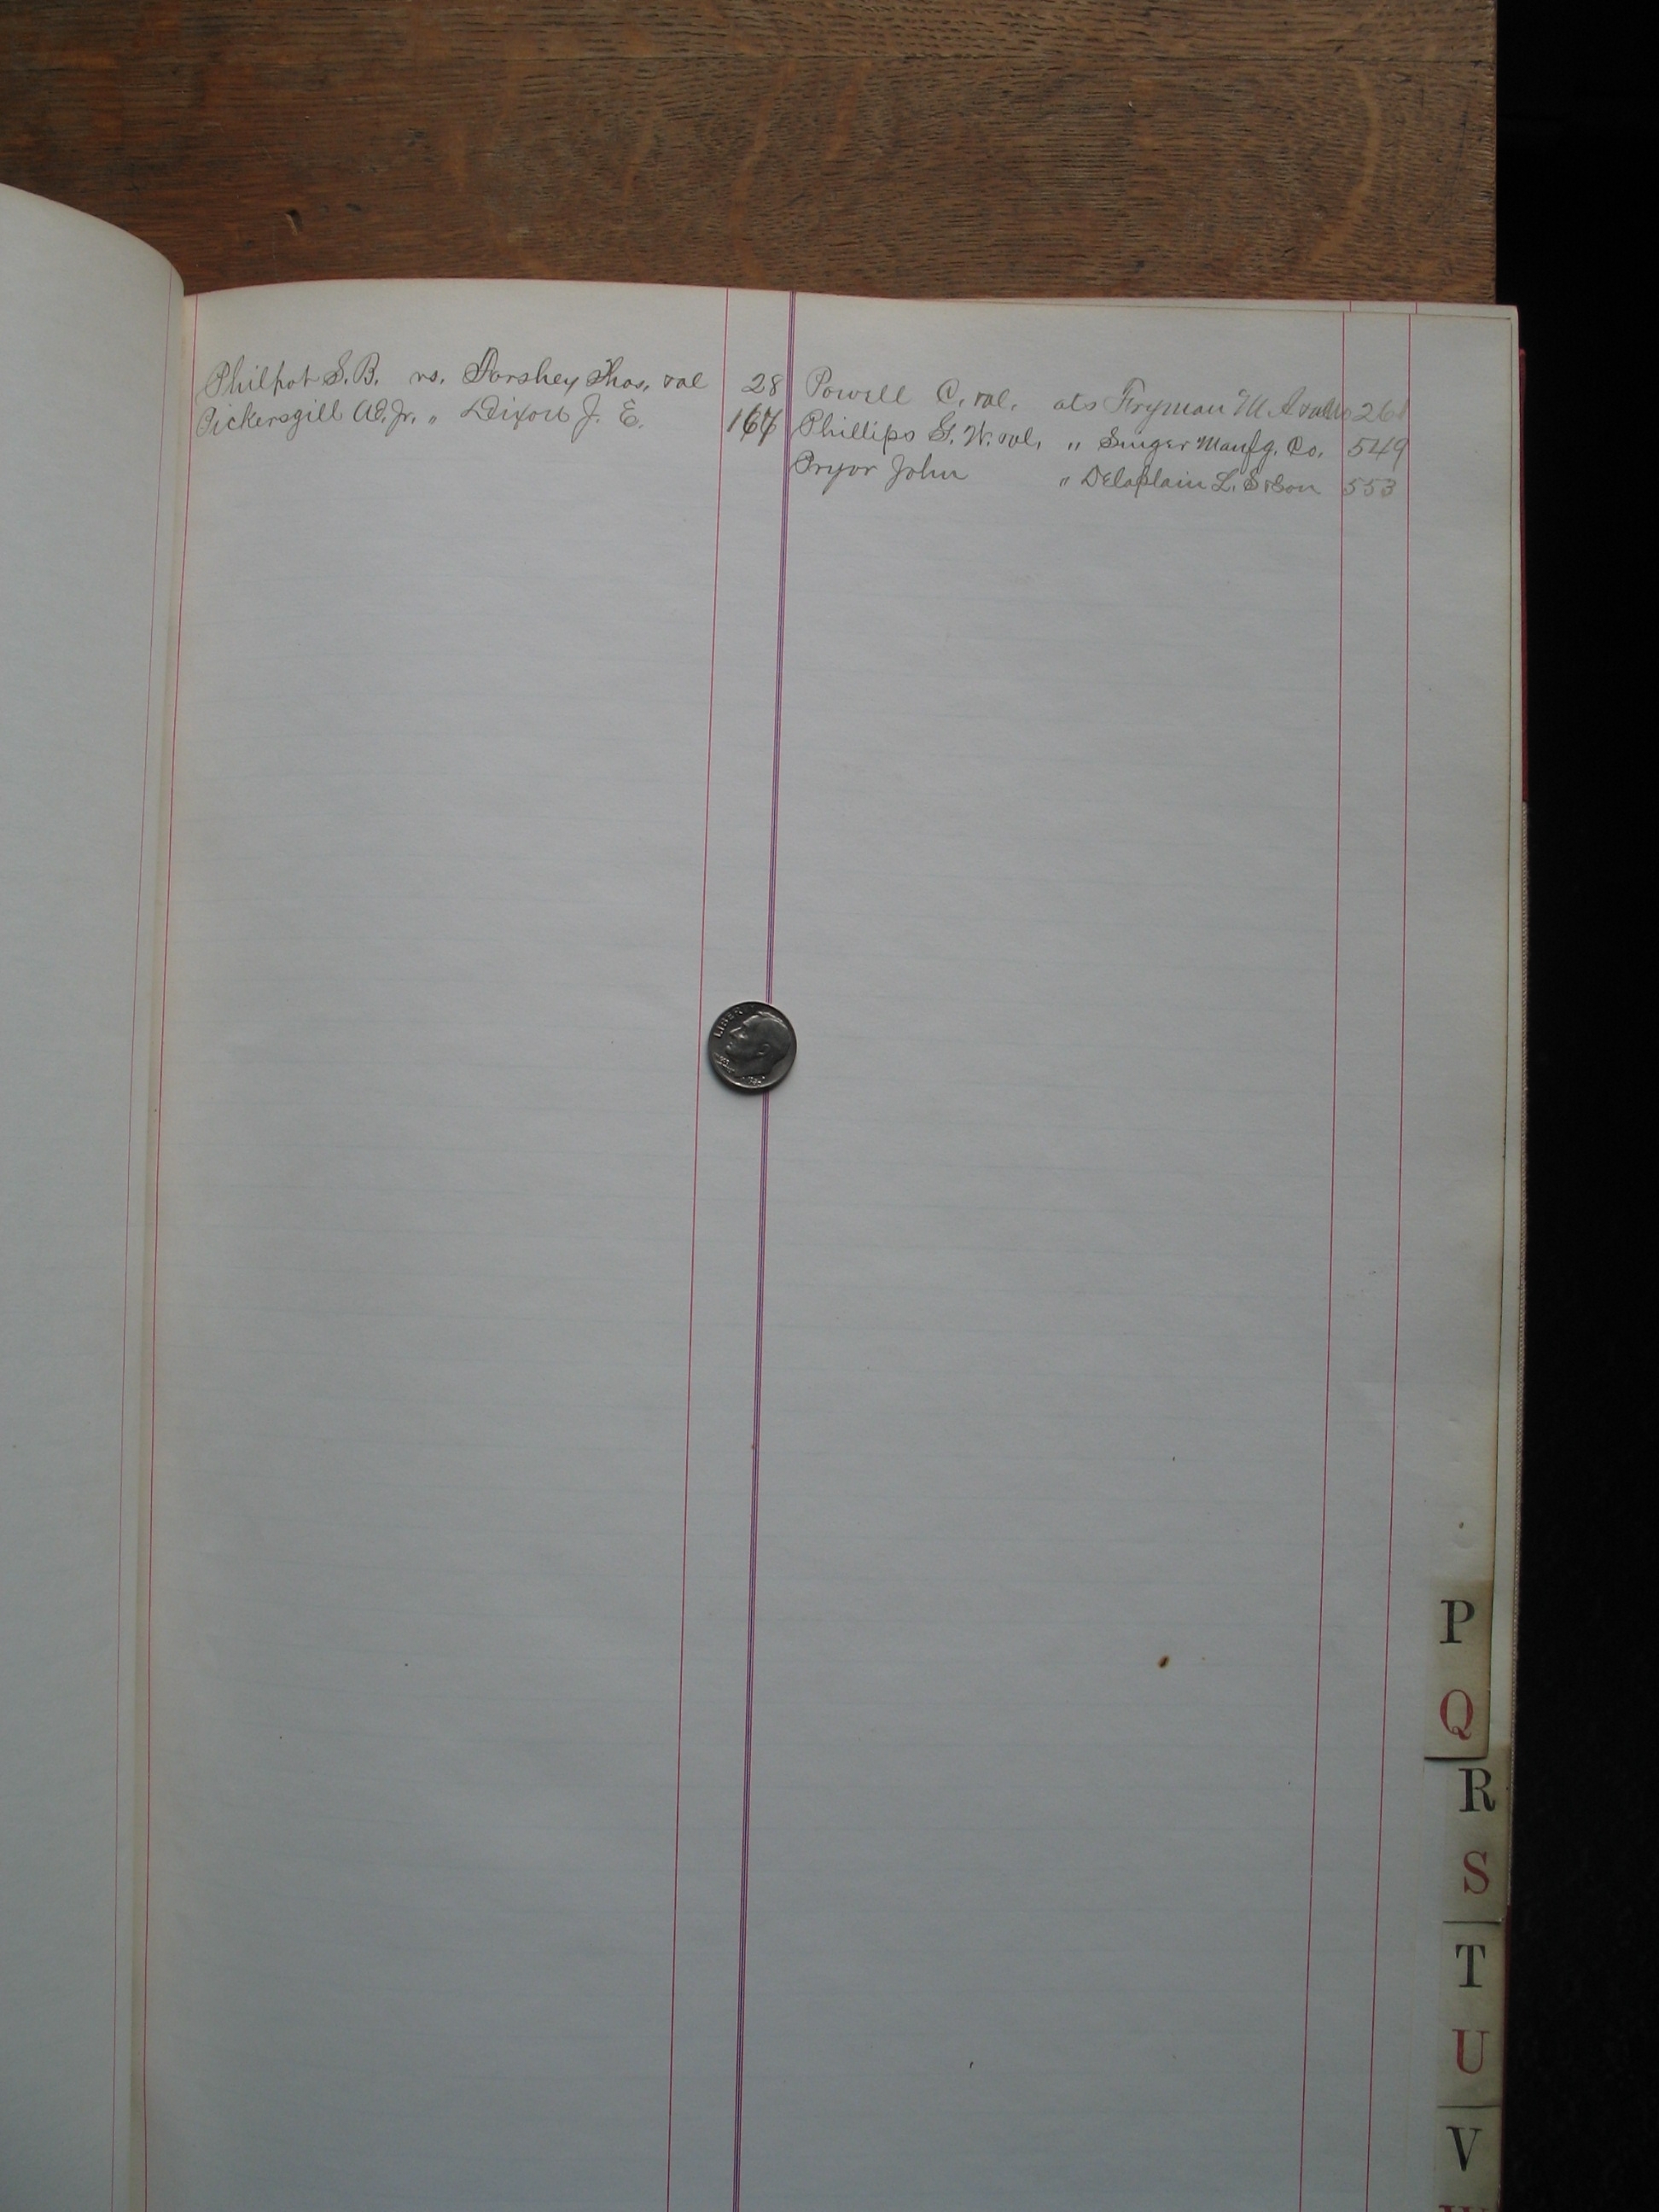 Philpot S.B. vs. Forshey Thos. et al 28
Pickersgill W.C. Jr. " Dixon J. E. 167
Powell C. et al. ats Fryman M A 268
Phillips G. W. et al. " Singer Manfg. Co. 549
Pryor John " Delaplain L. S & Son 553
LIBERTY
P
Q
R
S
T
U
V